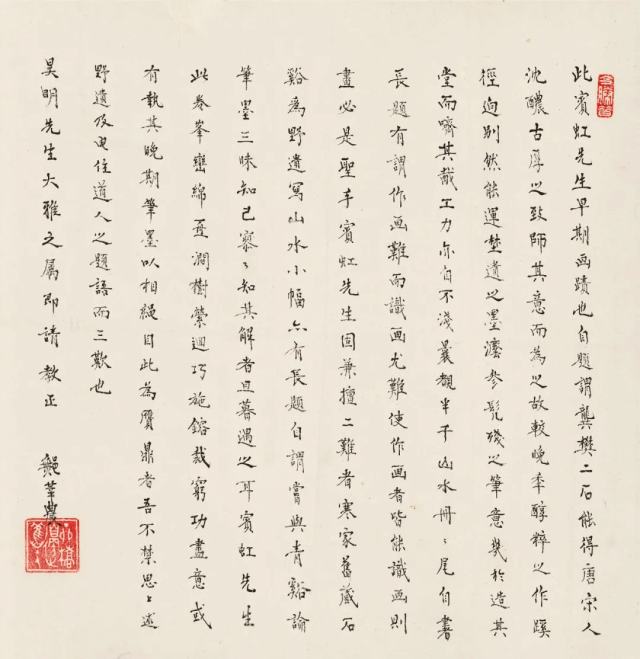 此賓虹先生早期画蹟也自題謂龔樊二石能得唐宋人
沈釀古厚之致師其意而為之故較晚季醇粹之作蹊
徑迥別然能運埜遺之墨瀋參髡殘之筆意幾於造其
堂而嚌其胾工力亦自不淺曩覩半千山水冊〻尾自書
長題有謂作画難而識画尤難使作画者皆能識画則
畫必是聖手賓虹先生固兼擅二難者寒家舊藏石
谿為野遺寫山水小幅亦有長題自謂嘗與青谿論
筆墨三昧知己寥〻知其解者旦暮遇之耳賓虹先生
此卷峯巒綿亙澗樹縈迴巧施鎔裁窮功盡意或
有執其晚期筆墨以相繩目此為贋鼎者吾不禁思上述
野遺及電住道人之題語而三歎也
昊明先生大雅之屬即請教正
華農